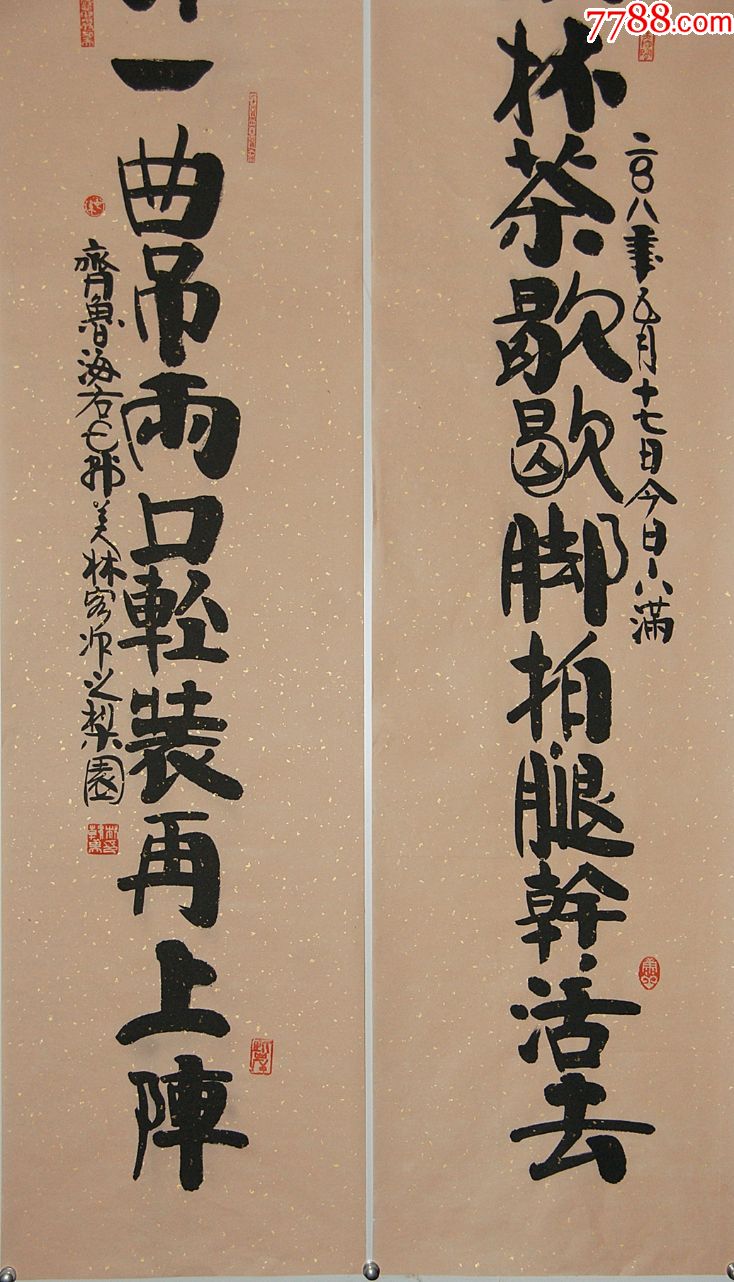 7788.com
杯茶歇歇脚拍腿幹活去
二〇〇八年五月十七日今日小满
一曲吊兩口輕装再上陣
齊魯海右七
美林客
之梨園